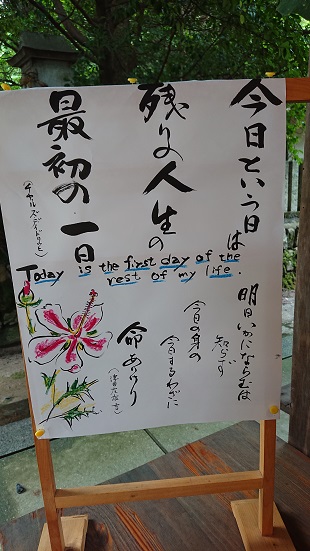 今日という日は
残りの人生の
最初の一日
Today is the first day of the
rest of my life.
明日いかにならむは
知らず
今日の身の
今日するわざに
命ありけり